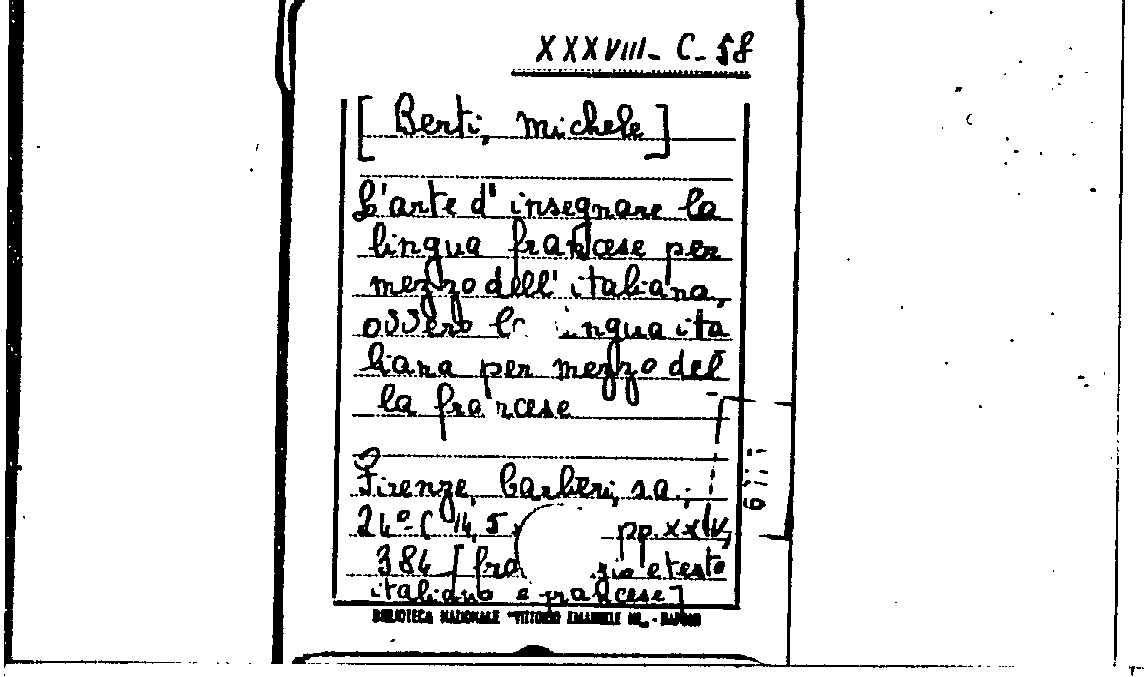 XXXVIII- C- 58
[ Berti, Michele ]
L'arte d'insegnare la
lingua francese per
mezzo dell'italiana,
ovvero la lingua ita
liana per mezzo del
la francese
Firenze, Barberi, s.a.;
24°- (14,5 pp. xxIV,
384 [ e testo
italiano e francese ]
BIBLIOTECA NAZIONALE "VITTORIO EMANUELE III" - NAPOLI